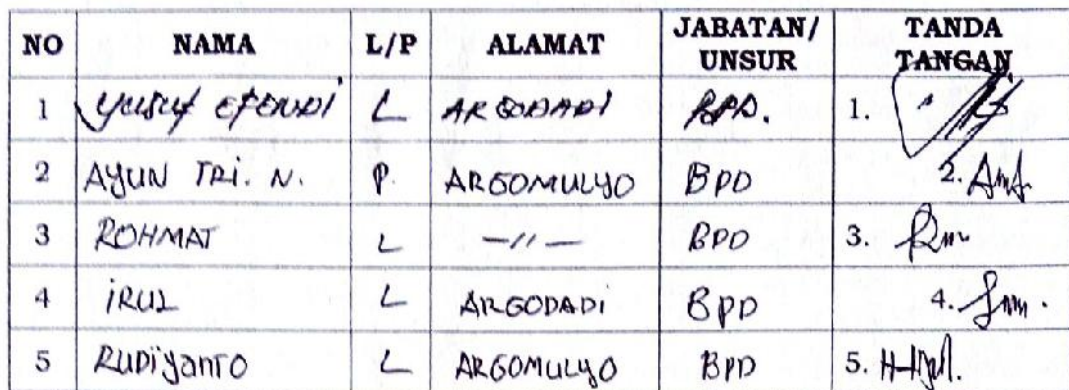 NO NAMA L/P ALAMAT JABATAN/ UNSUR TANDA TANGAN
1 YUSUF EFENDI L ARGODADI BPD. 1.
2 AYUN TRI. N. P. ARGOMULYO BPD 2.
3 ROHMAT L —〃— BPD 3.
4 iRUL L ARGODADi BPD 4.
5 RUDiyanTO L ARGOMULYO BPD 5.